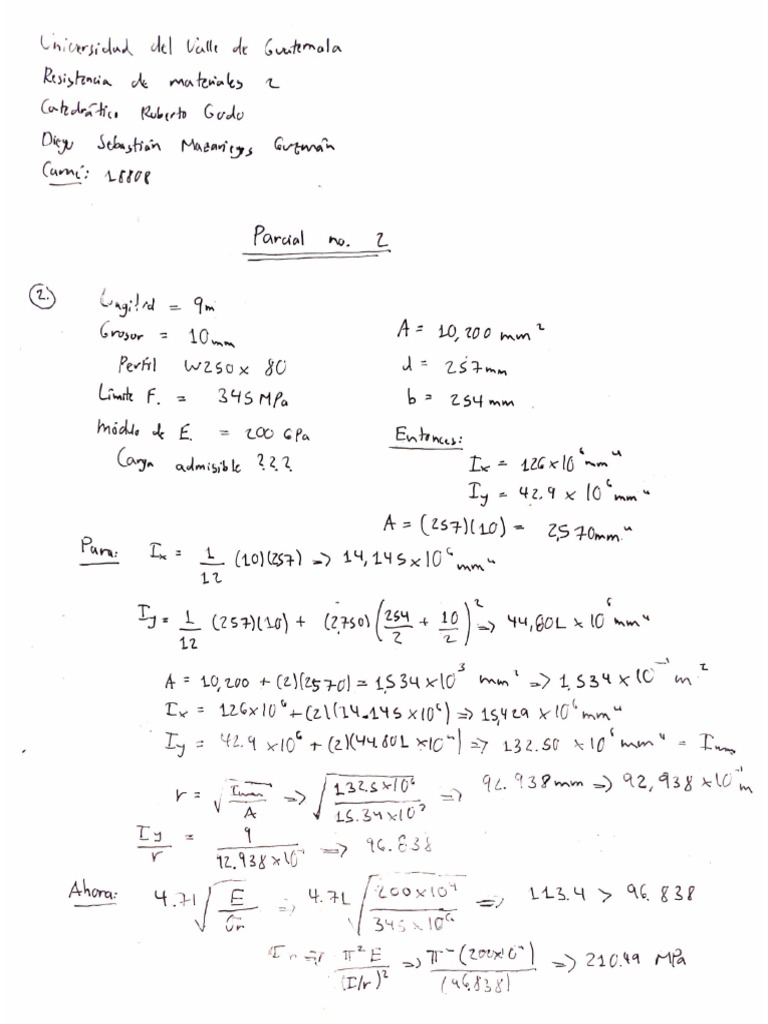 Universidad del Valle de Guatemala
Resistencia de materiales 2
Catedrático Roberto Godo
Diego Sebastián Mazariegos Guzmán
Carné: 18808
Parcial no. 2
2.
Longitud = 9m
Grosor = 10mm
Perfil W250 x 80
Límite F. = 345 MPa
módulo de E. = 200 GPa
Carga admisible ???
A = 10,200 mm²
d = 257mm
b = 254mm
Entonces:
Ix = 126x10⁶ mm⁴
Iy = 42.9 x 10⁶ mm⁴
A = (257)(10) = 2,570mm⁴
Para: Ix = 1/12 (10)(257) => 14,145x10⁶ mm⁴
Iy = 1/12 (257)(10) + (2,750)(254/2 + 10/2)² => 44,801 x 10⁶ mm⁴
A = 10,200 + (2)(2570) = 15.34x10³ mm² => 1,534x10⁻¹ m²
Ix = 126x10⁶ + (2)(14.145x10⁶) => 154.29 x10⁶ mm⁴
Iy = 42.9 x10⁶ + (2)(44.801 x10⁶) => 132.50 x10⁶ mm⁴ = Imin
r = √(Imin/A) => √(132.5x10⁶/15.34x10³) => 92.938mm => 92,938x10⁻¹ m
Iy/r = 9/92.938x10⁻¹ => 96.838
Ahora: 4.71√(E/σr) => 4.71√(200x10⁹/345x10⁶) => 113.4 > 96.838
π²E/(I/r)² => π²(200x10⁹)/(96.838) => 210.49 MPa